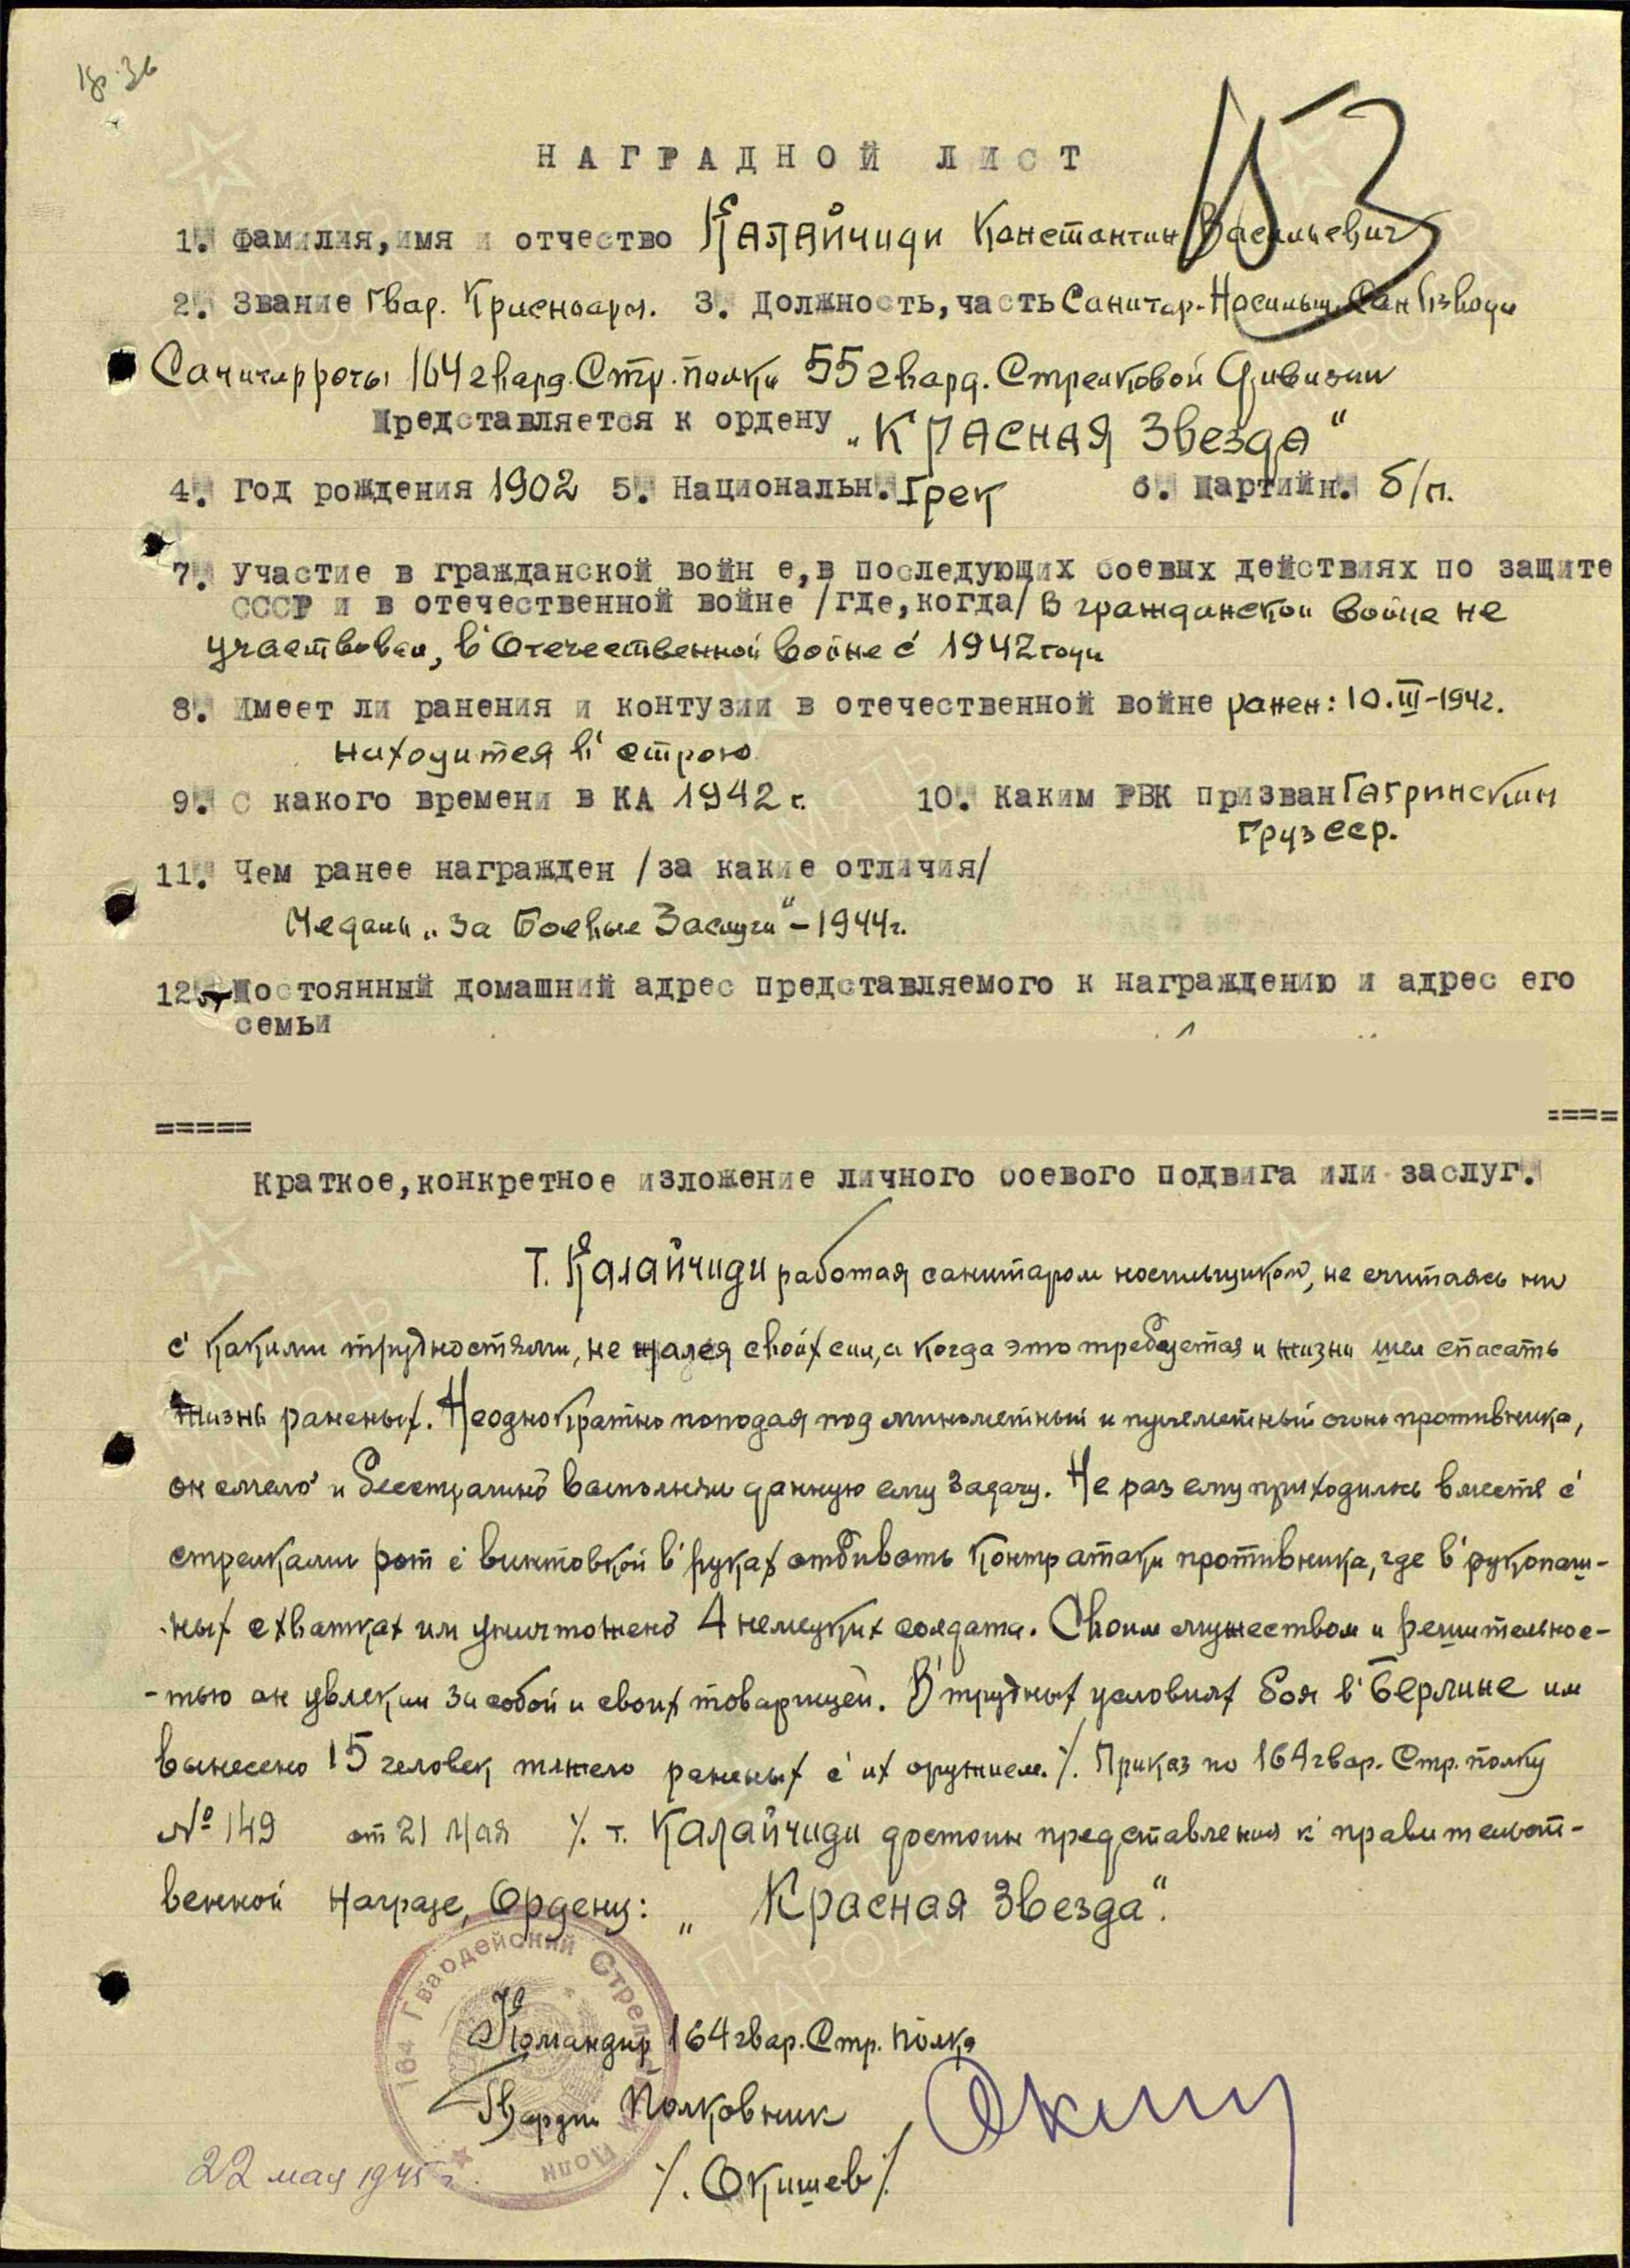 НАГРАДНОЙ ЛИСТ
1. Фамилия, имя и отчество Калайчиди Константин Васильевич
2. Звание Гвар. Красноарм. 3. Должность, часть Санитар-Носильщ. Сан Взвода
Санитарроты 164 гвард. Стр. полка 55 гвард. Стрелковой Дивизии
Представляется к ордену „Красная Звезда"
4. Год рождения 1902 5. Национальн. Грек 6. Партийн. б/п.
7. Участие в гражданской войн е, в последующих боевых действиях по защите
СССР и в отечественной войне /где, когда/ В гражданской войне не
участвовал, в Отечественной войне с 1942 года
8. Имеет ли ранения и контузии в отечественной войне ранен: 10.III-194г.
находится в строю
9. С какого времени в КА 1942 г. 10. Каким РВК призван Гагринским
Груз ССР.
11. Чем ранее награжден /за какие отличия/
Медаль „За Боевые Заслуги" – 1944г.
12. Постоянный домашний адрес представляемого к награждению и адрес его
семьи
===== ====
Краткое, конкретное изложение личного боевого подвига или заслуг.
Т. Калайчиди работая санитаром носильщиком, не считаясь ни
с какими трудностями, не жалея своих сил, а когда это требуется и жизни шел спасать
жизнь раненых. Неоднократно поподая под минометный и пулеметный огонь противника,
он смело и бесстрашно выполнял данную ему задачу. Не раз ему приходилось вместе с
стрелками рот с винтовкой в руках отбивать контратаки противника, где в рукопаш-
ных схватках им уничтожено 4 немецких солдата. Своим мужеством и решительнос-
-тью он увлекал за собой и своих товарищей. В трудных условиях боя в Берлине им
вынесено 15 человек тяжело раненых с их оружием. /. Приказ по 164 гвар. Стр. полку
№ 149 от 21 Мая /. т. Калайчиди достоин представления к правительст-
венной награде, Ордену: „Красная Звезда".
164 Гвардейский Стрел Полк
Командир 164 гвар. Стр. полка
Гвардии Полковник
/. Окишев /.
22 мая 1945 г.